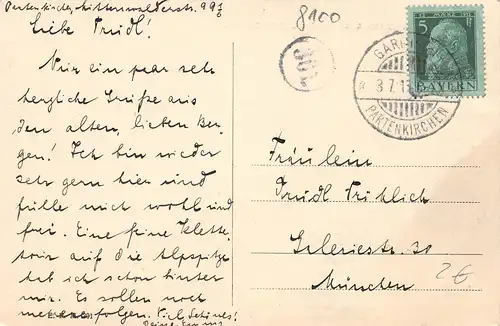 Partenkirchen, Mittenwalderstr. 
Liebe Trudl!
Nur ein paar sehr
herzliche Grüße aus
den alten, lieben Ber-
gen! Ich bin wieder
sehr gern hier und
fühle mich wohl und
frei. Eine feine Klette-
tour auf die Alpspitze
hab ich schon hinter
mir. Es sollen noch
weitere folgen. Viel Schönes!
Deine Emmy
8100
361
5 5
BAYERN
GARMISCH
PARTENKIRCHEN
Fräulein
Trudl Fröhlich
Galeriestr. 30
München
2€